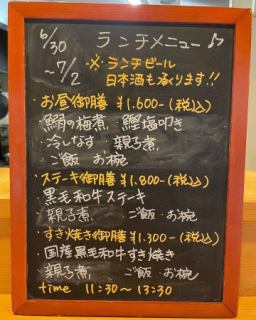 6/30
～7/2
ランチメニュー♪
※ ランチビール
日本酒も承ります!!
・お昼御膳 ¥1.600-(税込)
・鰯の梅煮 ・鰹塩叩き
・冷しなす ・親子煮
・ご飯 ・お椀
・ステーキ御膳 ¥1.800-(税込)
・黒毛和牛ステーキ
・親子煮 ・ご飯 ・お椀
・すき焼き御膳 ¥1.300-(税込)
・国産黒毛和牛すき焼き
・親子煮 ・ご飯 ・お椀
time 11:30～13:30